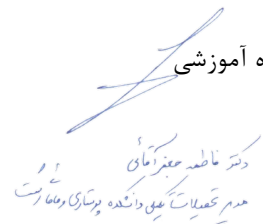 ه آموزشی
دکتر فاطمه جعفرآقائی
مدیر تحصیلات تکمیلی دانشکده پرستاری و مامائی رشت